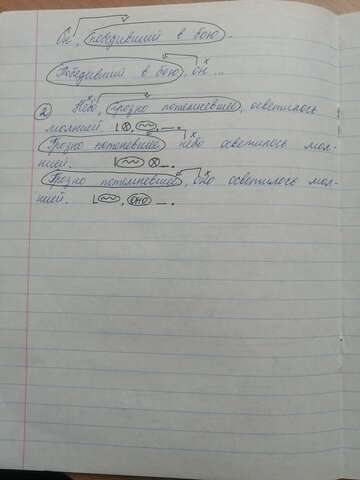 Он, победивший в бою.
Победивший в бою, он ...
2) Небо, грозно потемневшее, осветилось
молнией
Грозно потемневшее небо осветилось мол-
нией.
Грозно потемневшее, оно осветилось мол-
нией. оно